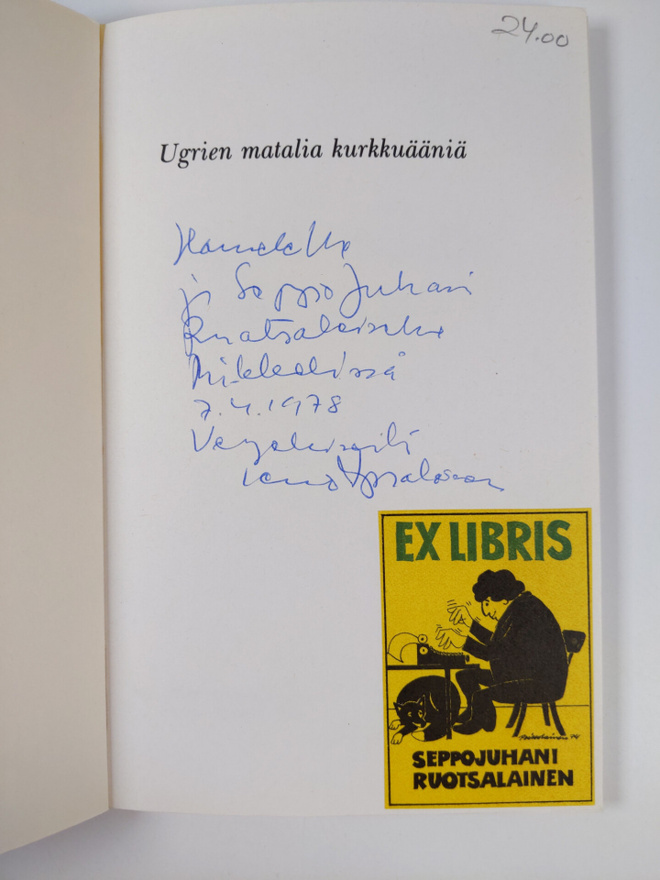 24.00
Ugrien matalia kurkkuääniä
ja Seppo Juhani
Ruotsalaiselle
Mikkelissä
7.4.1978
EX LIBRIS
SEPPOJUHANI
RUOTSALAINEN